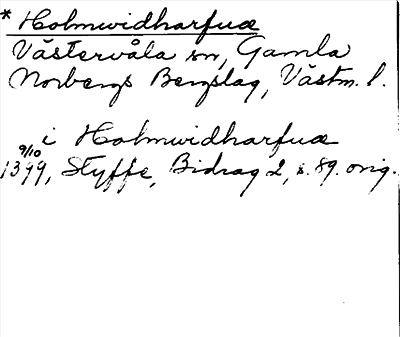 * Holmwidharfuæ
Västervåla sn, Gamla
Norbergs Bergslag, Västm. l.
i Holmwidharfuæ
9/10
1399, Styffe, Bidrag 2, s. 89. orig.